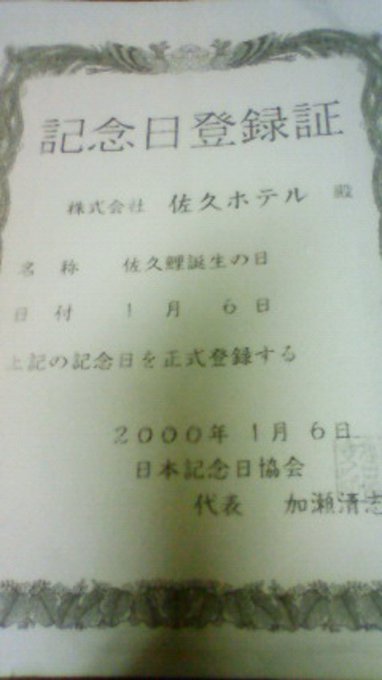 記念日登録証
株式会社 佐久ホテル 殿
名称 佐久鯉誕生の日
日付 1月6日
上記の記念日を正式登録する
2000年1月6日
日本記念日協会
代表 加瀬清志